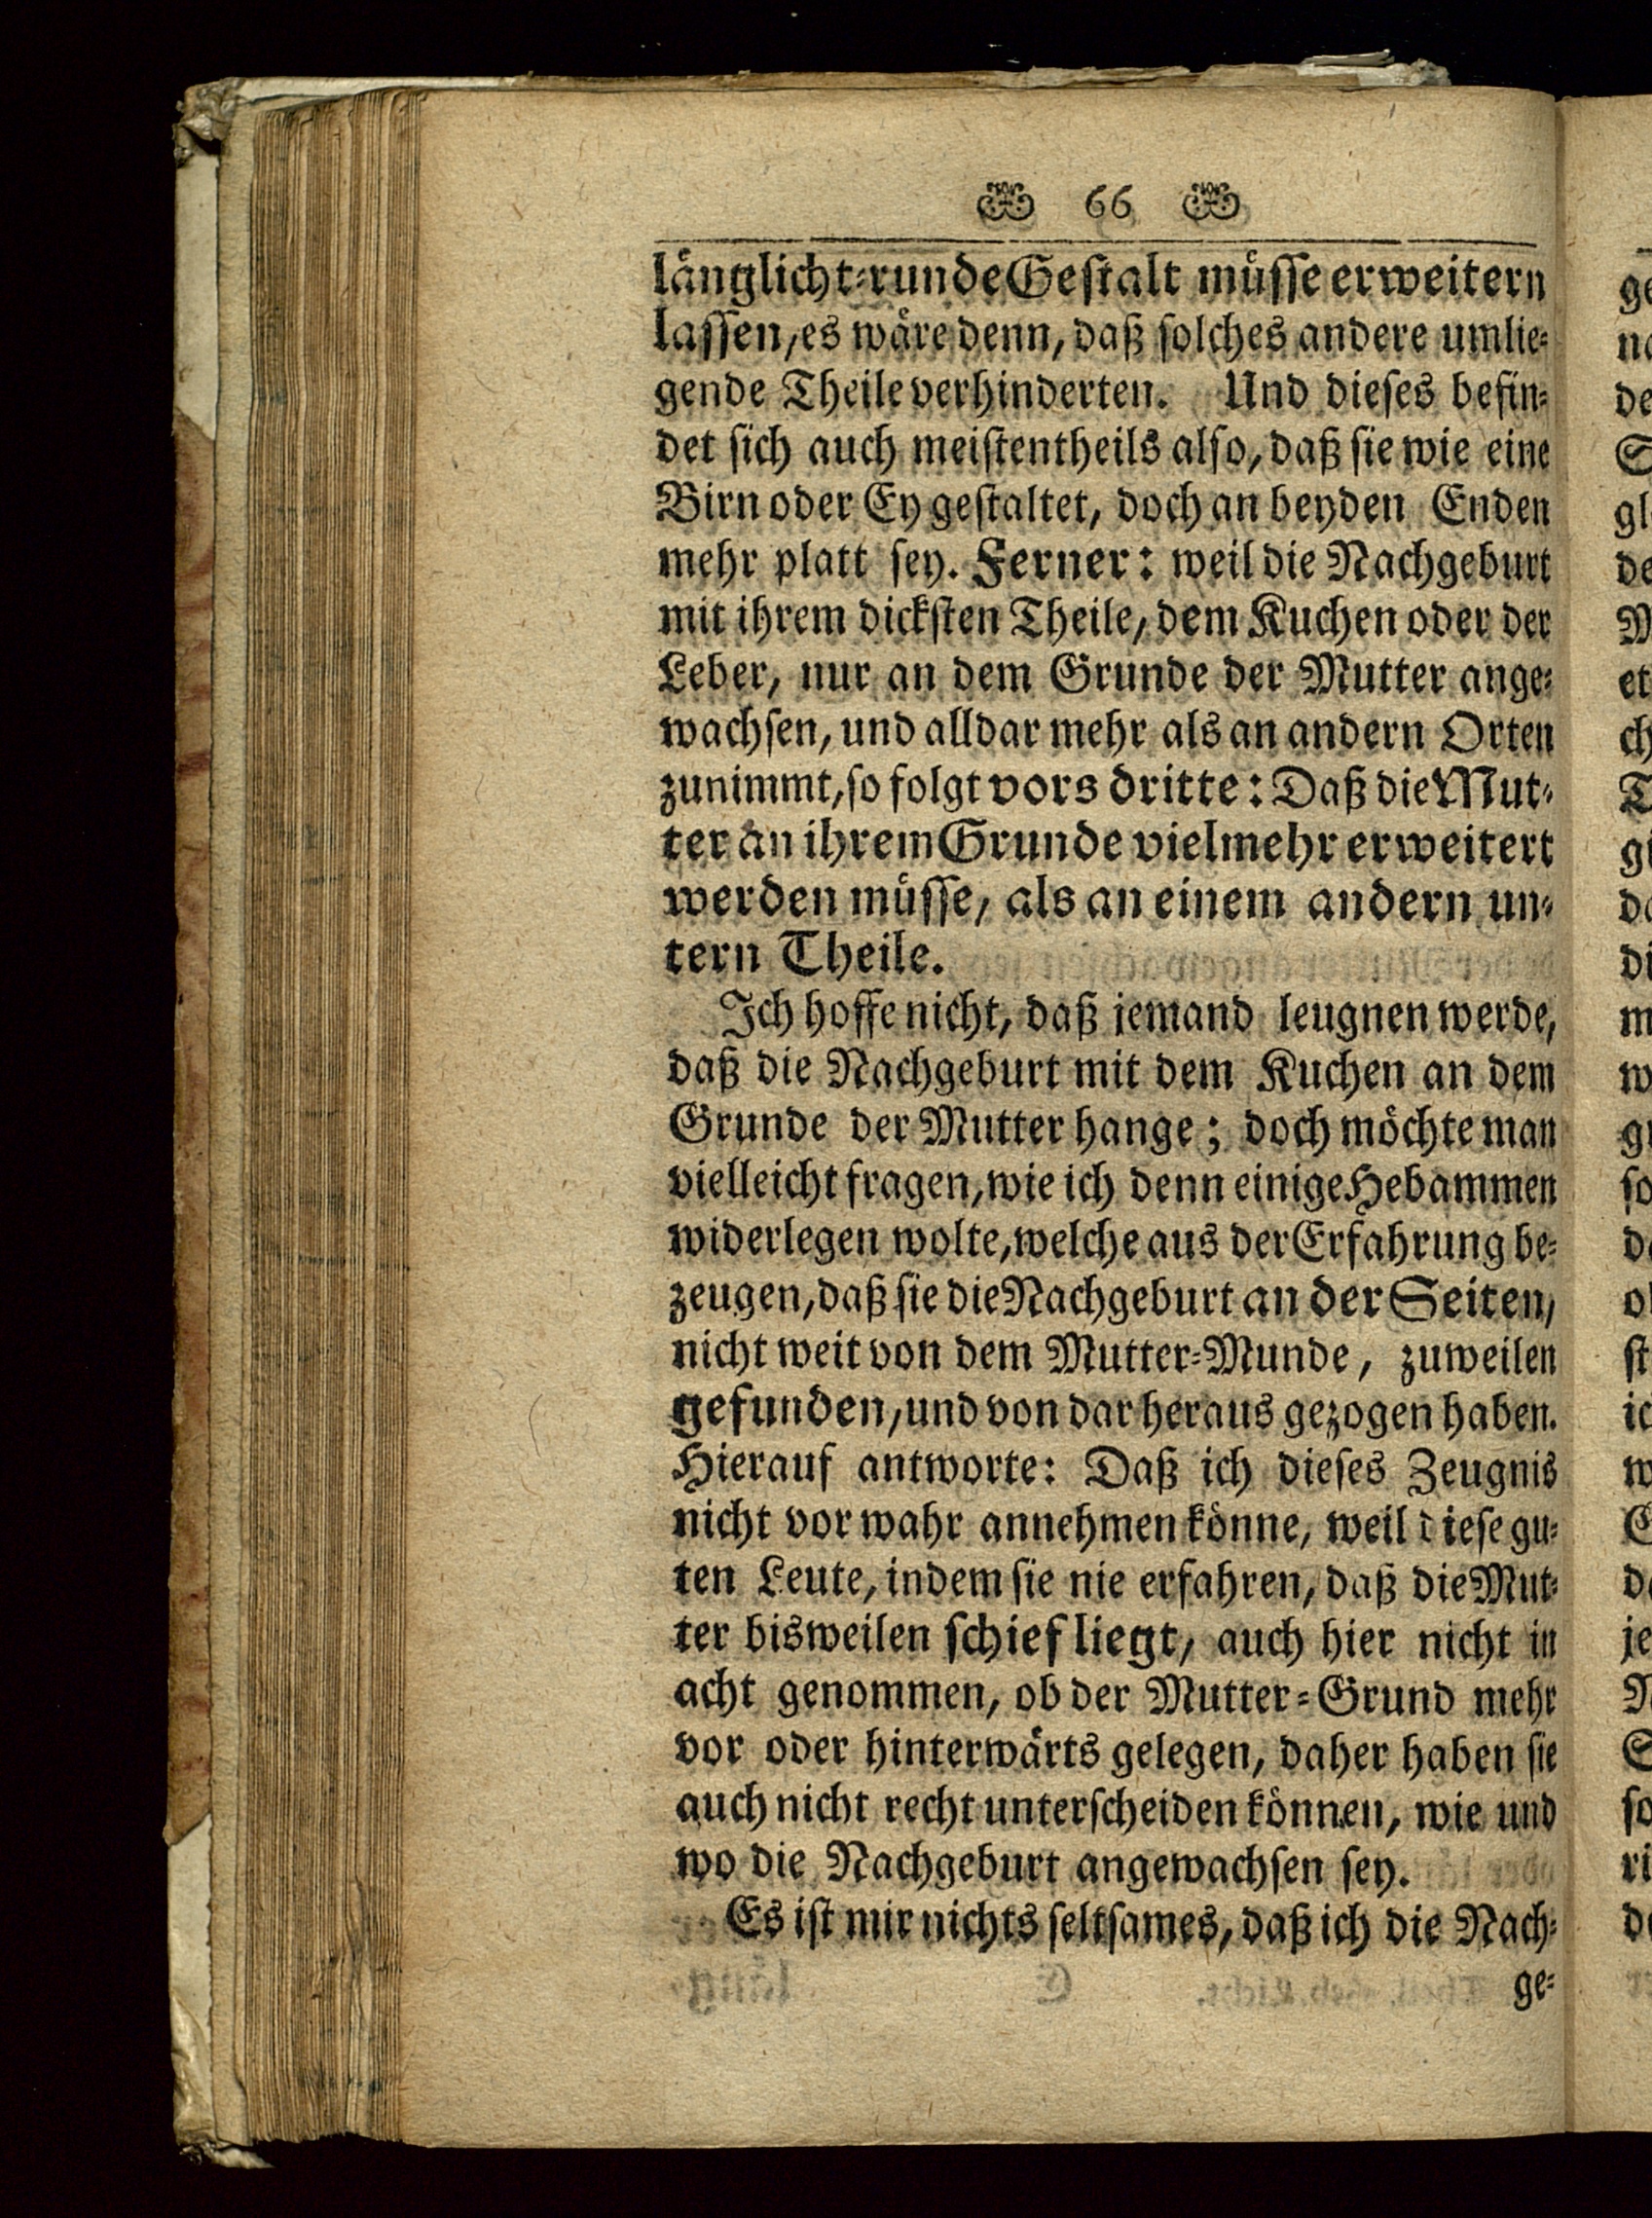 66
länglicht-runde Gestalt müsse erweitern
lassen, es wäre denn, daß solches andere umlie-
gende Theile verhinderten. Und dieses befin-
det sich auch meistentheils also, daß sie wie eine
Birn oder Ey gestaltet, doch an beyden Enden
mehr platt sey. Ferner: weil die Nachgeburt
mit ihrem dicksten Theile, dem Kuchen oder der
Leber, nur an dem Grunde der Mutter ange-
wachsen, und alldar mehr als an andern Orten
zunimmt, so folgt vors dritte: Daß die Mut-
ter an ihrem Grunde vielmehr erweitert
werden müsse, als an einem andern un-
tern Theile.
Ich hoffe nicht, daß jemand leugnen werde,
daß die Nachgeburt mit dem Kuchen an dem
Grunde der Mutter hange; doch möchte man
vielleicht fragen, wie ich denn einige Hebammen
widerlegen wolte, welche aus der Erfahrung be-
zeugen, daß sie die Nachgeburt an der Seiten,
nicht weit von dem Mutter-Munde, zuweilen
gefunden, und von dar heraus gezogen haben.
Hierauf antworte: Daß ich dieses Zeugnis
nicht vor wahr annehmen könne, weil diese gu-
ten Leute, indem sie nie erfahren, daß die Mut-
ter bisweilen schief liegt, auch hier nicht in
acht genommen, ob der Mutter-Grund mehr
vor oder hinterwärts gelegen, daher haben sie
auch nicht recht unterscheiden können, wie und
wo die Nachgeburt angewachsen sey.
Es ist mir nichts seltsames, daß ich die Nach-
ge-